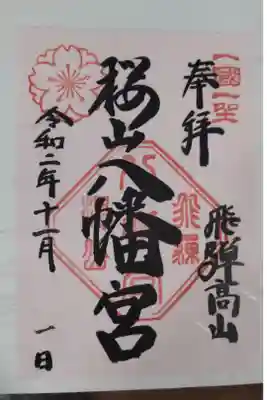 奉拝
飛騨高山
桜山八幡宮
令和二年十一月一日